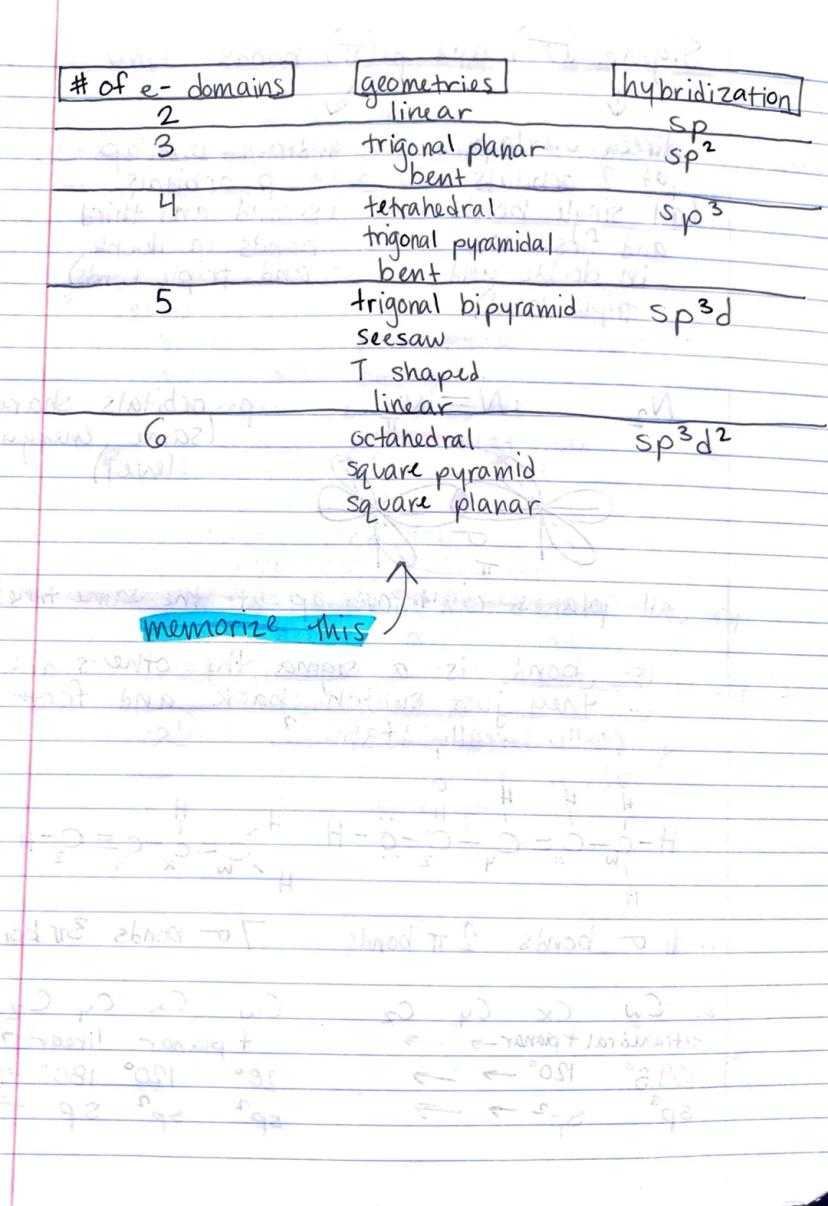 # of e- domains geometries hybridization
2 linear sp
3 trigonal planar sp²
bent
4 tetrahedral sp³
trigonal pyramidal
bent
5 trigonal bipyramid sp³d
seesaw
T shaped
linear
6 octahedral sp³d²
square pyramid
square planar
memorize this